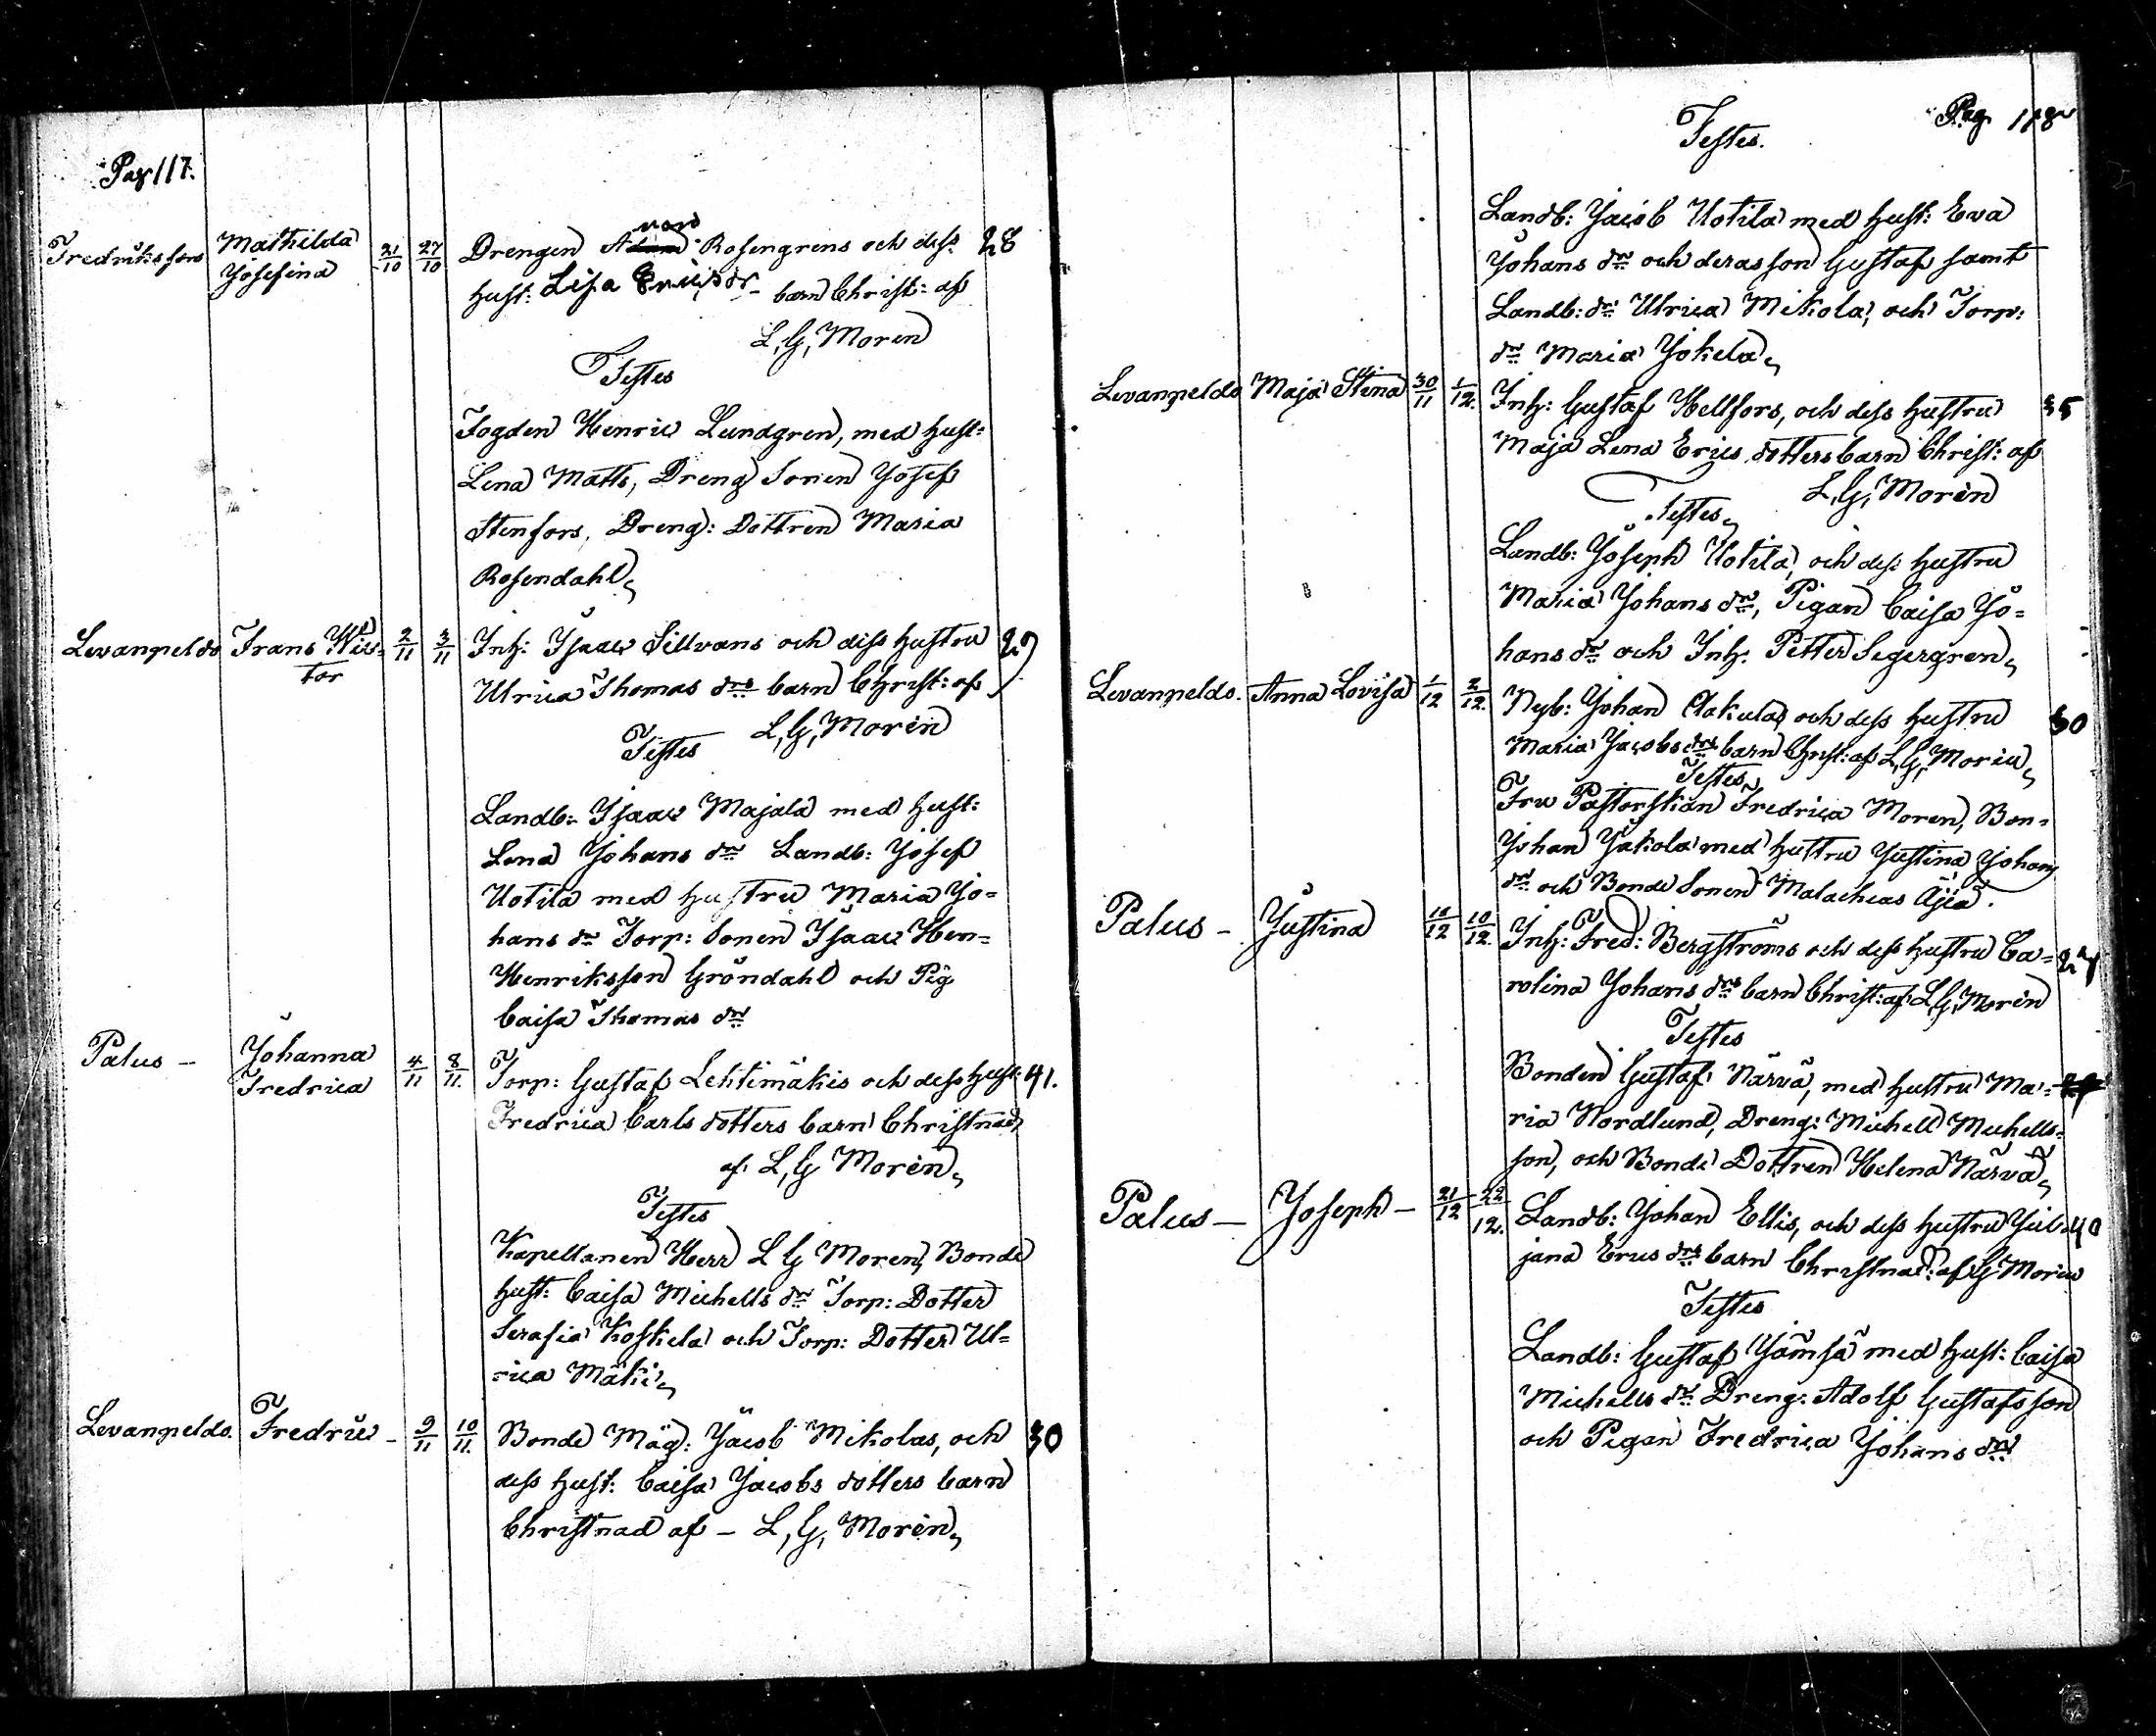 Pag 117.
Fredriksfors Mathilda Josefina 21/10 27/10 Drengen Rosengrens och dess 28
hust: Lisa Ericsdr barn Christ: af
L, G, Moren
Testes
Fogden Henric Lundgren, med hust:
Lena Matts, Dreng Sonen Josef
Stenfors, Dreng: Dottren Maria
Rosendahl,
Levanpeldo Frans Wic= tor 2/11 3/11 Inh: Isaac Sillvans och dess hustru 29
Ulrica Thomas drs barn Christ: af
Testes L, G, Morén
Landb: Isaac Majala med hust:
Lena Johans dr Landb: Josef
Uotila med hustru Maria Jo=
hans dr Torp: Sonen Isaac Hen=
Henriksson Gröndahl och Pig
Caisa Thomas dr
Palus - Johanna Fredrica 4/11 8/11. Torp: Gustaf Lehtimäkis och dess hust: 41.
Fredrica Carls dotters barn Christnad
af L, G Morén,
Testes
Kapellanen Herr L G Moren, Bonde
hust: Caisa Michells dr Torp: Dotter
Serafia Koskela och Torp: Dotter Ul=
rica Mäki,
Levanpeldo. Fredric - 9/11 10/11. Bonde Måg: Jacob Mikolas, och 30
dess hust: Caisa Jacobs dotters barn
Christnad af - L, G, Morén,
Pag 118
Testes.
Landb: Jacob Uotila med hust: Eva
Johans dr och deras son Gustaf samt
Landb: dr Ulrica Mikola, och Torp:
dr Maria Jokela,
Levanpeldo Maja Stina 30/11 1/12. Inh: Gustaf Hellfors, och dess hustru 35
Maja Lena Erics dotters barn Christ: af
L, G, Morén
Testes,
Landb: Joseph Uotila, och dess hustru
Maria Johans dr, Pigan Caisa Jo=
hans dr och Inh: Petter Segergren,
Levanpeldo. Anna Lovisa 1/12 2/12. Nyb: Johan och dess hustru 30
Maria Jacobs drs barn Christ: af L, G, Moren,
Testes,
Fru Pastorskan Fredrica Moren, Bon=
Johan Jakola med hustru Justina Johans
dr och Bonde Sonen Malachias Äjiä.
Palus - Justina 10/12 10/12. Inh: Fred: Bergströms och dess hustru Ca= 27
rolina Johans drs barn Christ: af L, G, Morén
Testes
Bonden Gustaf Närvä, med hustru Ma=
ria Nordlund, Dreng: Michell Michells=
son, och Bonde Dottren Helena Närvä,
Palus - Joseph - 21/12 22/12. Landb: Johan Ellis, och dess hustru Jul 40
jana Erics drs barn Christnad: af G Moren
Testes
Landb: Gustaf Jämsä med hust: Caisa
Michells dr Dreng: Adolf Gustafsson
och Pigan Fredrica Johans dr